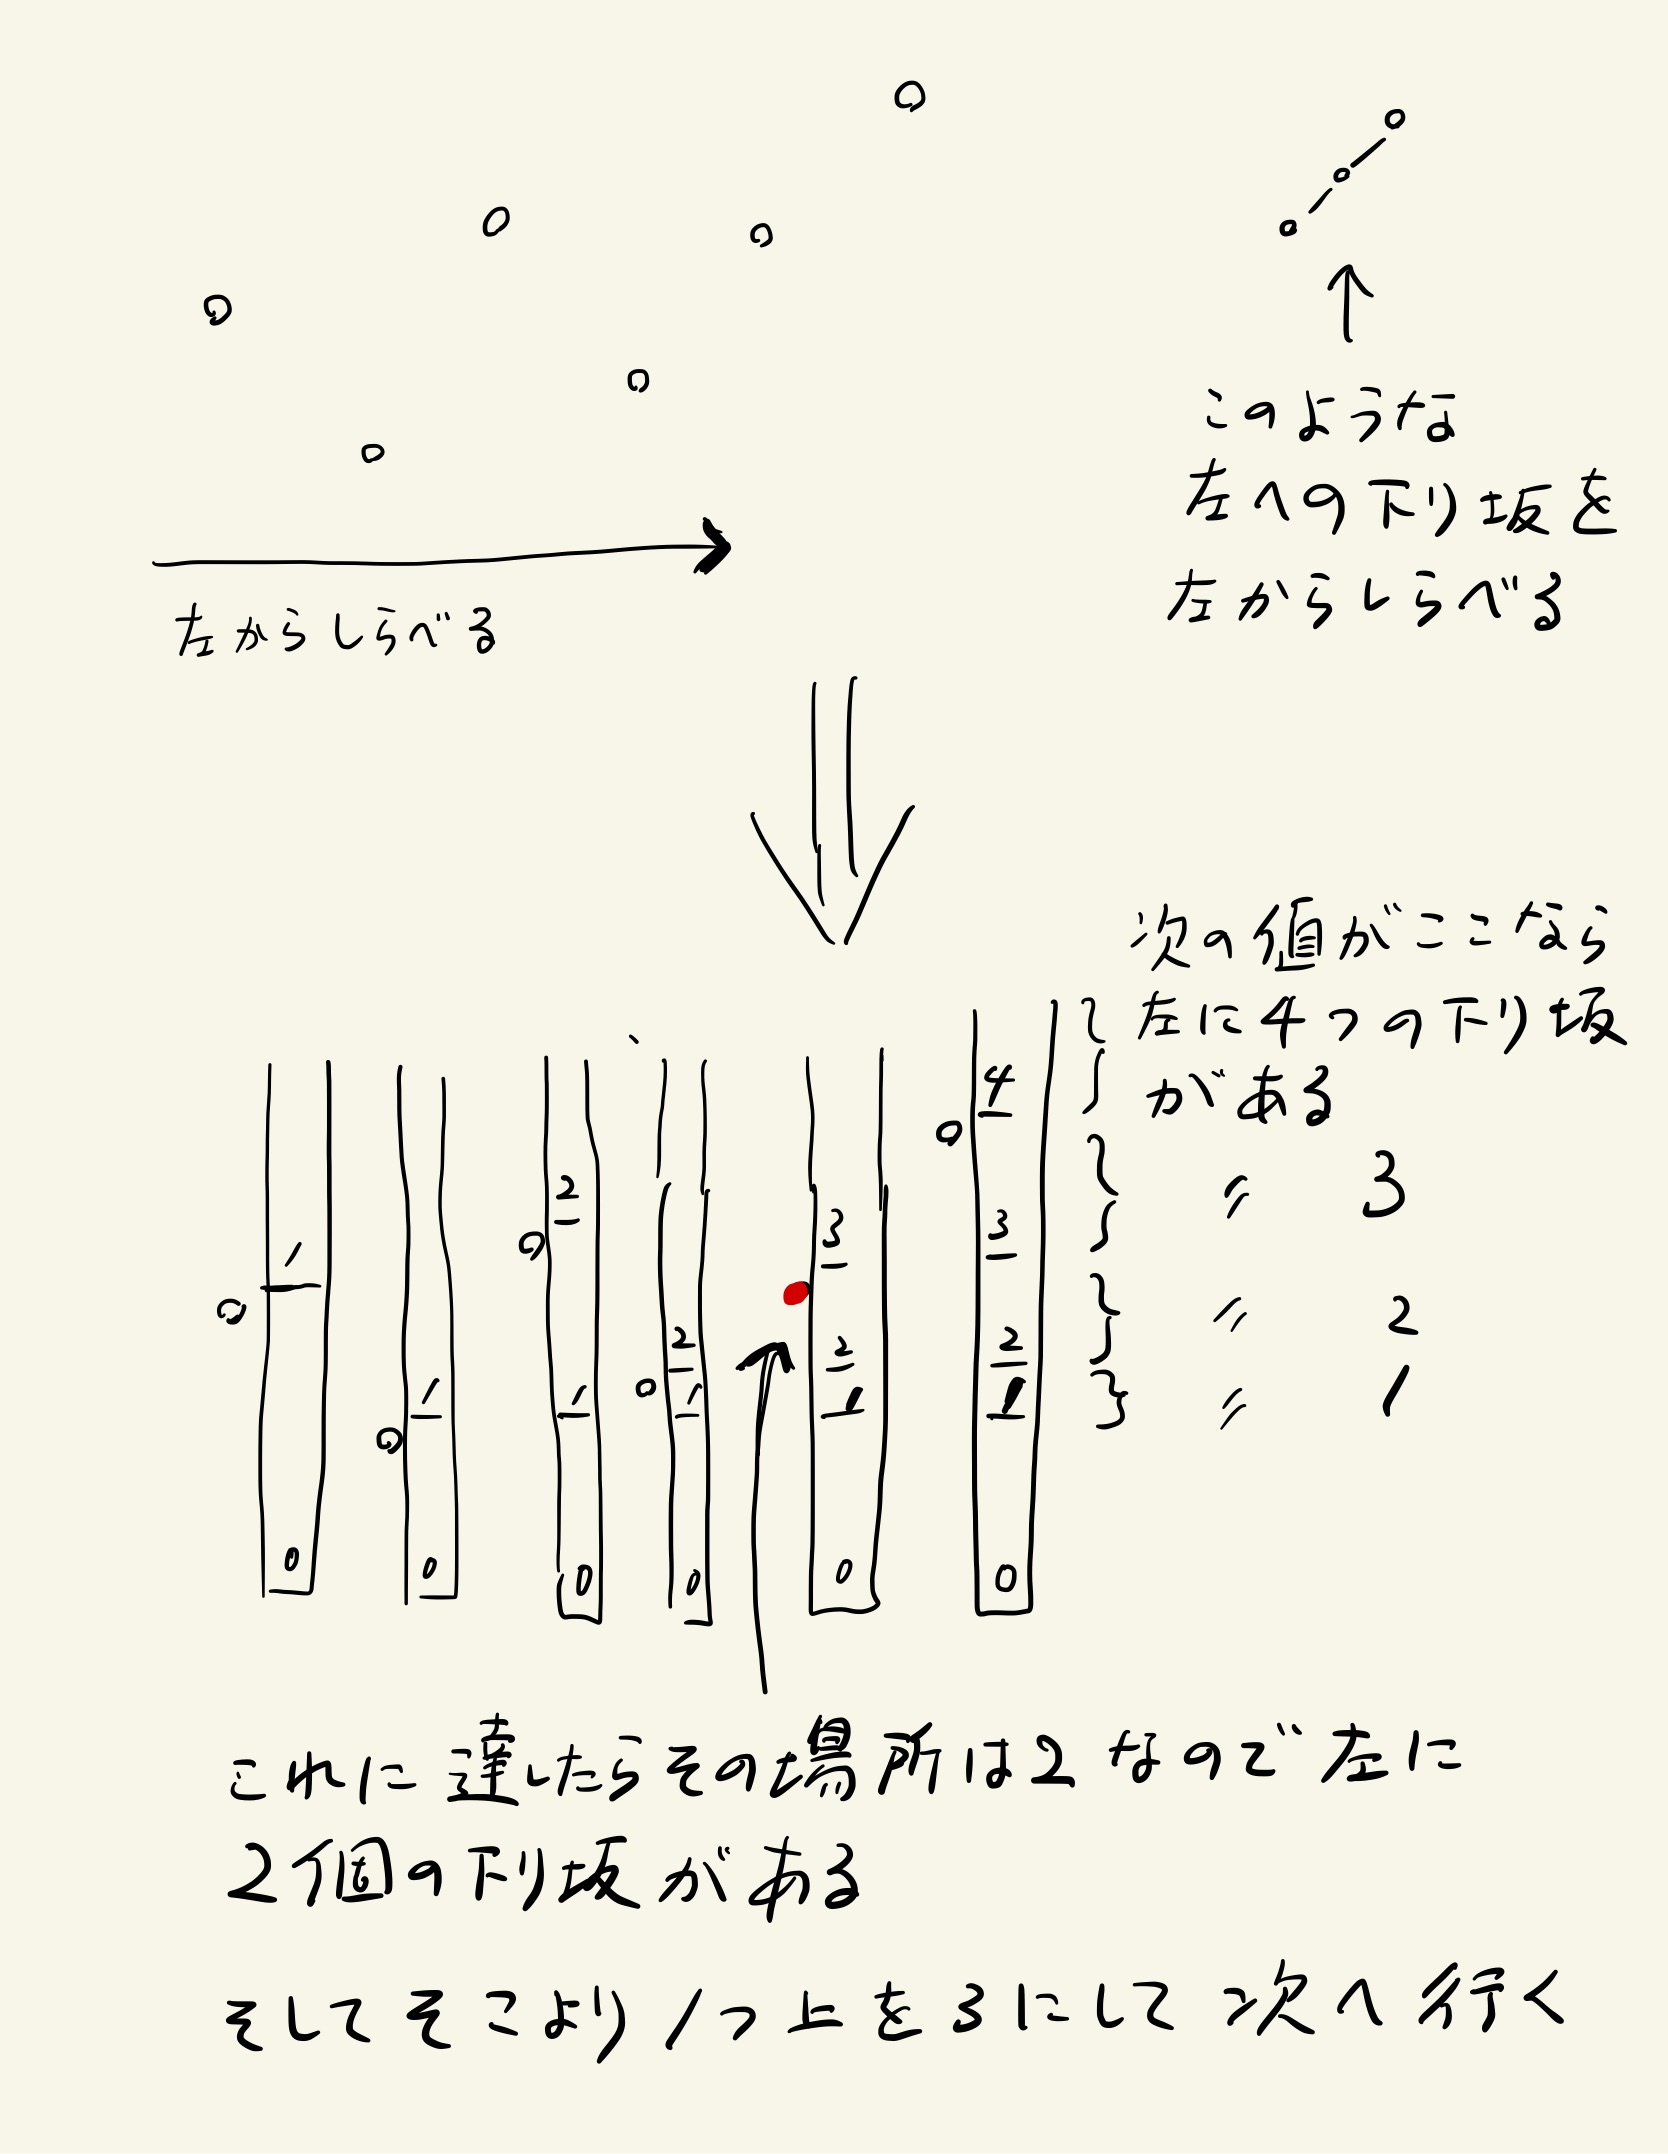 このような
左への下り坂を
左からしらべる
左からしらべる
次の値がここなら
左に4つの下り坂
がある
〃 3
〃 2
〃 1
1
0
1
0
2
1
0
2
1
0
3
2
1
0
4
3
2
1
0
これに達したらその場所は2なので左に
2個の下り坂がある
そしてそこより1つ上を3にして次へ行く